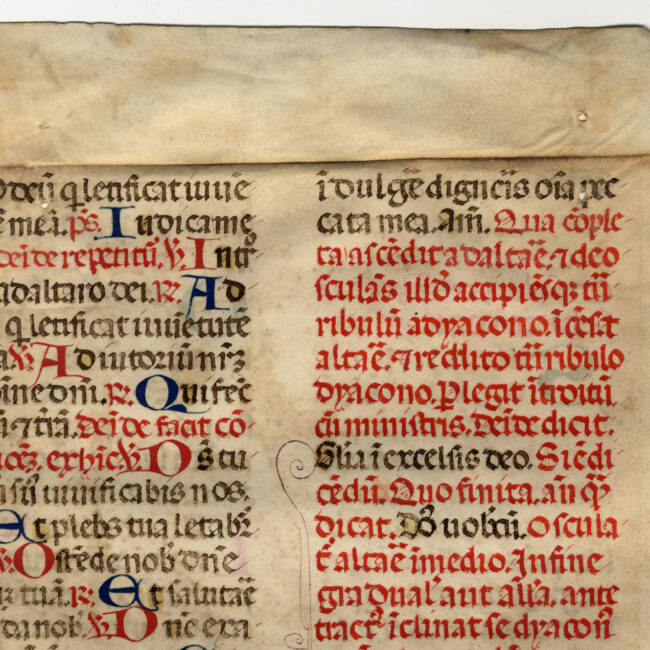 deū q̄ letificat iuuē
ē meā. ps. Iudica me
deīde repetitū. ℣. Intr
ad altare dei. ℟. Ad
q̄ letificat iuuētutē
℣ Adiutoriū nr̄ꝫ
ine dni. ℟. Qui fec
ū ⁊ t̄rā. Deīde facit cō
℣ Ds̄ tu
uiuificabis nos.
Et plebs tua letabr̄
℣ Ostēde nob̄ dn̄e
tuā. ℟. Et salutāē
da nob̄. ℣ Dn̄e exa
īdulgē digneīs oīa pec
cata mea. Am̄. Qua cōple
ta ascēdit ad altāē. ⁊ deo
sculās illd̄ accipiēsqꝫ tū
ribulū a dyacono. īcēsat
altāē. ⁊ reddito tūribulo
dyacono. Plegit ītroitū
cū ministris. Deīde dicit.
Glīa ī excelsis deo. Si ēdi
cēdū. Quo finita. an̄ q̄ꝫ
dicat. Dn̄s uobcū. Oscula
t̄ altāē īmedio. In fine
gradual̄ aut all̄a. ante
tract᷒ īclinat se dyacon᷒